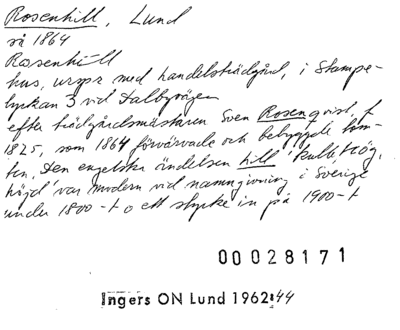 Rosenhill, Lund
så 1864
Rosenhill
hus, urspr med handelsträdgård, i Stampe-
lyckan 3 vid Dalbyvägen
efter trädgårdsmästaren Sven Rosenqvist, f
1825, som 1864 förvärvade och bebyggde tom-
ten. Den engelska ändelsen hill 'kulle, hög,
höjd' var modern vid namngivning i Sverige
under 1800-t o ett stycke in på 1900-t
00028171
Ingers ON Lund 1962:44